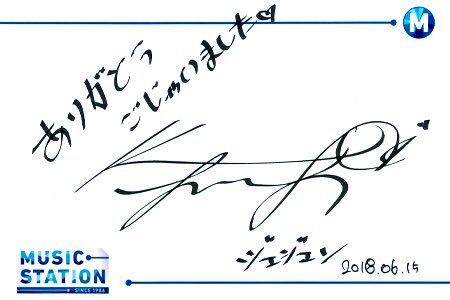 M
ありがとう
ごじゃいました♡
ジェジュン
2018.06.15
MUSIC
STATION
SINCE 1986